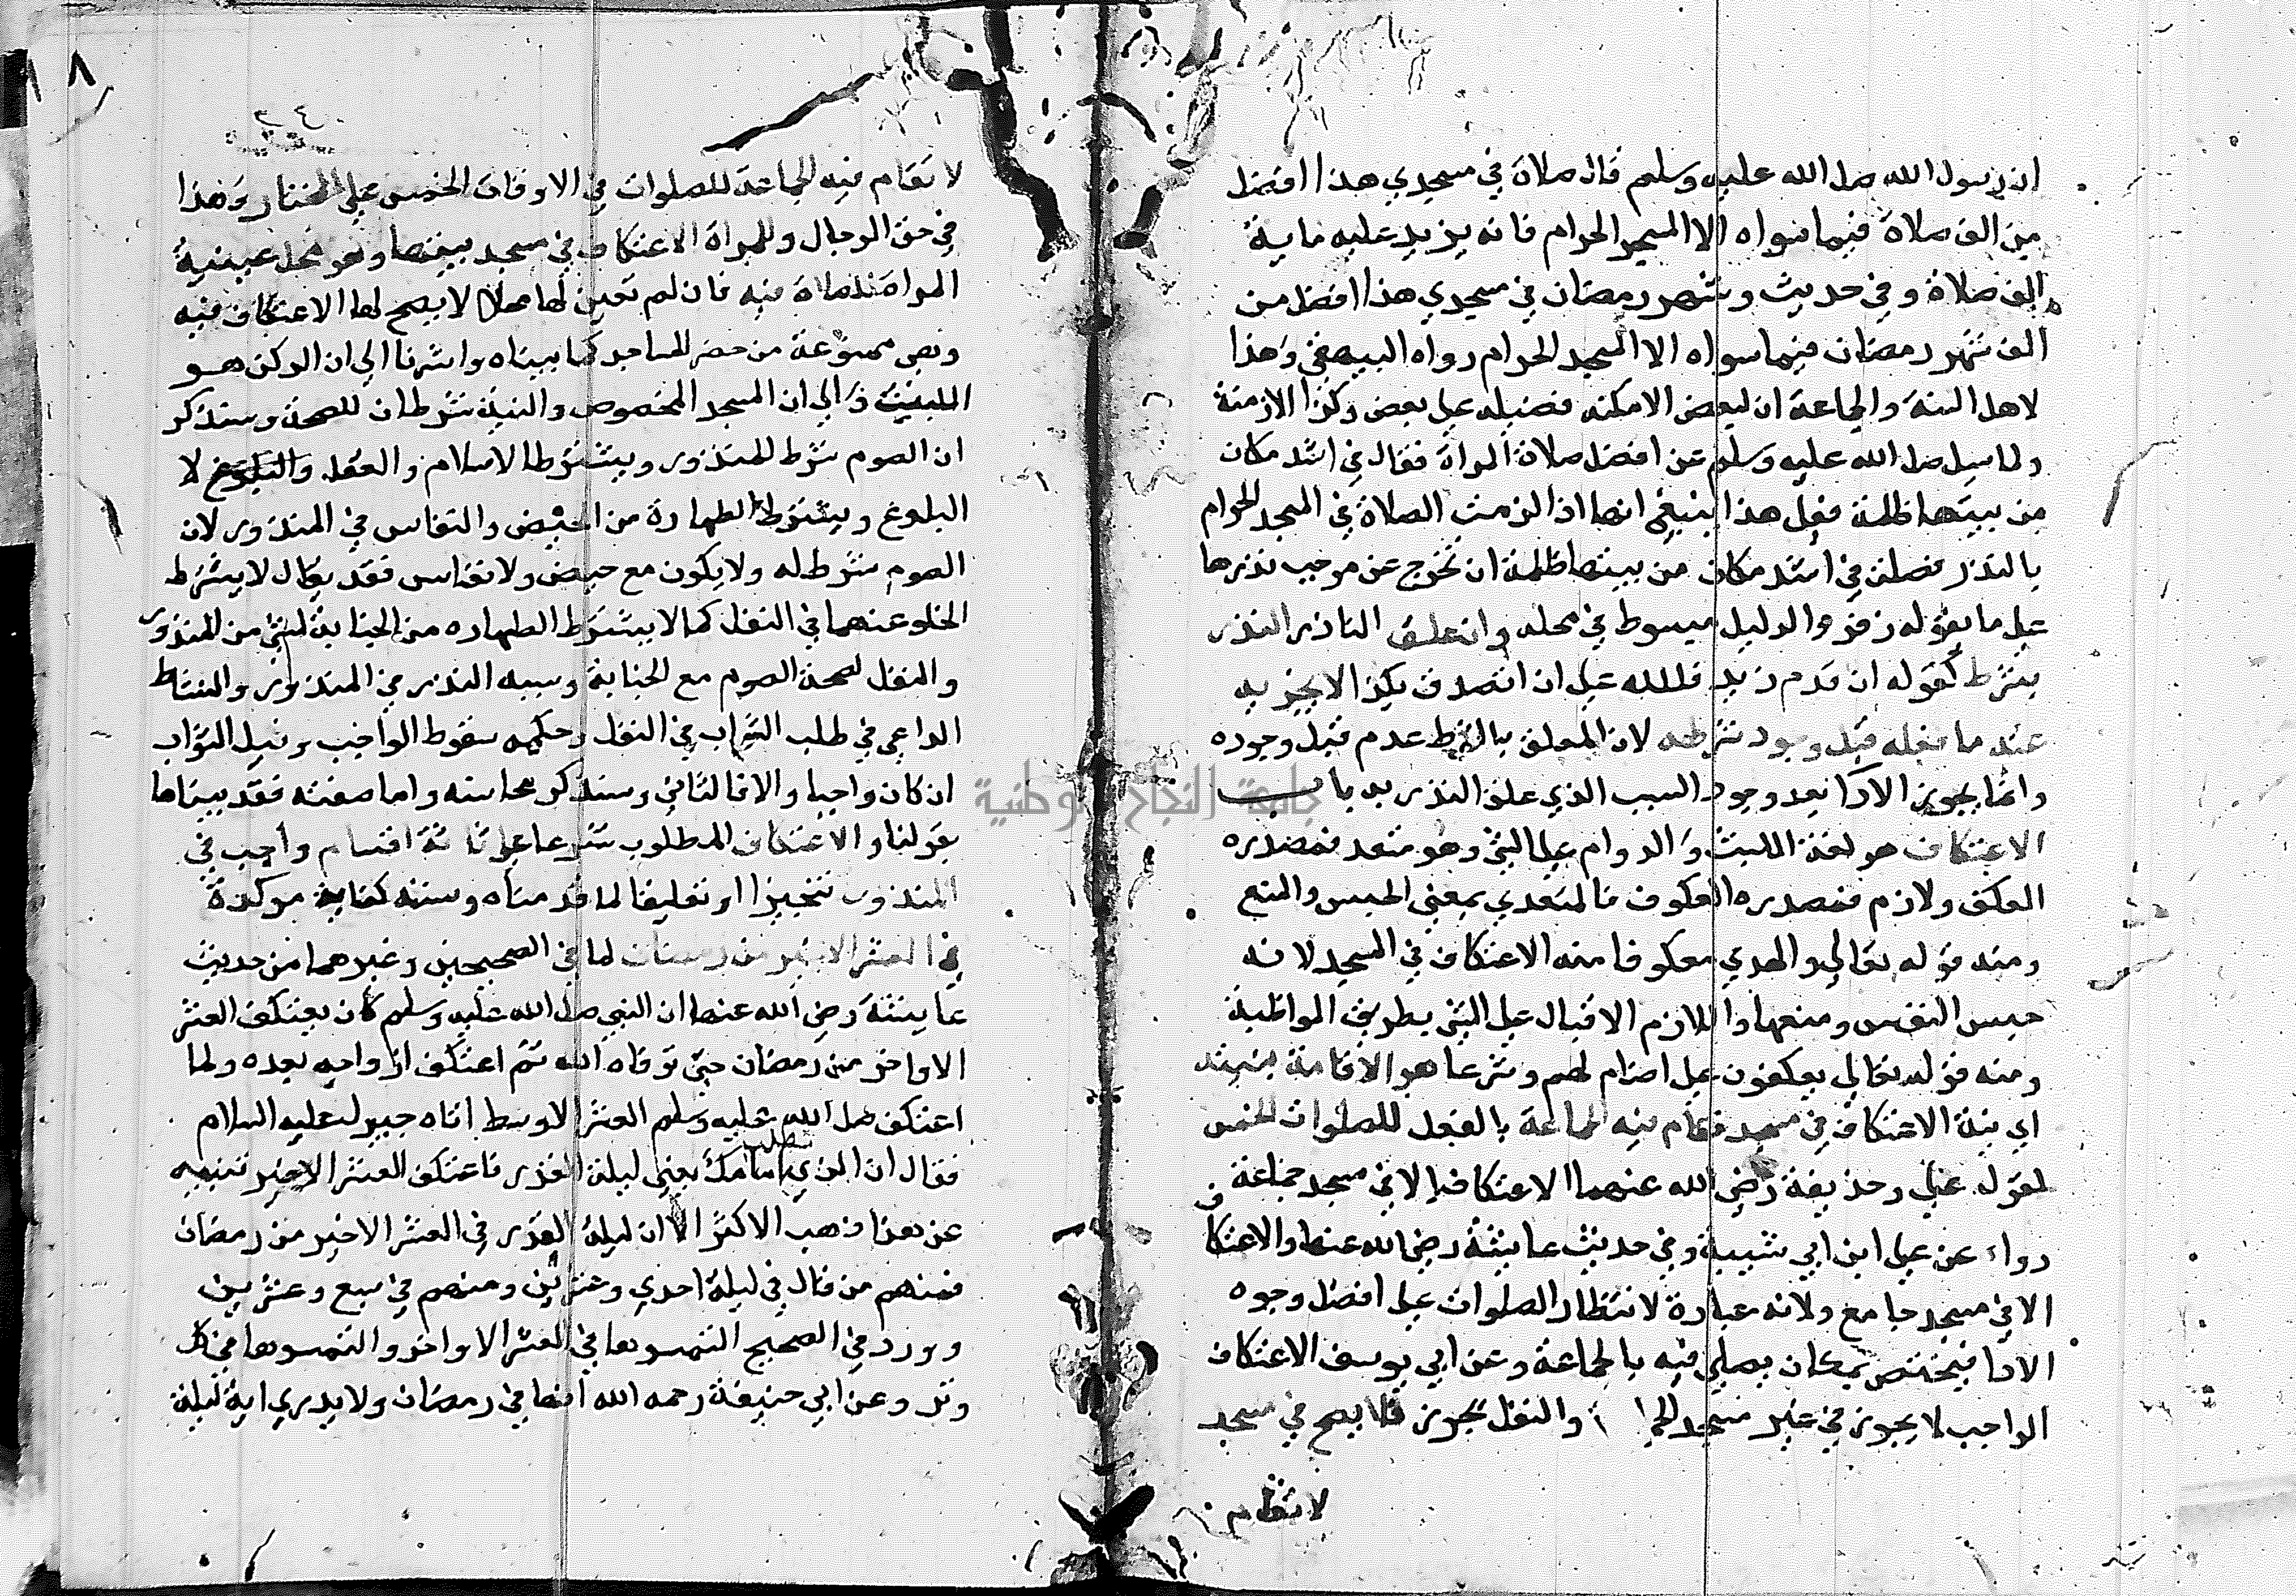 ان رسول الله صلى الله عليه وسلم قال صلاة في مسجدي هذا افضل
من الف صلاة فيما سواه الا المسجد الحرام فانه يزيد عليه ماية
الف صلاة وفي حديث وشهر رمضان في مسجدي هذا افضل من
الف شهر رمضان فيما سواه الا المسجد الحرام رواه البيهقي وهذا
لاهل السنة والجماعة ان لبعض الامكنه فضيله على بعض وكذا الازمنة
ولما سيل صلى الله عليه وسلم عن افضل صلاة المراة فقال في اشد مكان
من بيتها ظلمة فعلى هذا ينبغي انها اذا الزمت الصلاة في المسجد الحرام
بالنذر فصلت في اشد مكان من بيتها ظلمة ان تخرج عن موجب نذرها
على ما يقوله زفر والدليل مبسوط في محله وان علق الناذر النذر
بشرط كقوله ان قدم زيد فلله على ان اتصدق بكذا لا يجزيه
عنه ما فعله قبل وجود شرطه لان المعلق بالشرط عدم قبل وجوده
وانما يجوز الادا بعد وجود السبب الذي علق النذر به باب
الاعتكاف هو لغة اللبث والدوام على الشي وهو متعد فمصدره
العكف ولازم فمصدره العكوف فالمتعدي بمعنى الحبس والمنع
ومنه قوله تعالى والهدي معكوفا منه الاعتكاف في المسجد لانه
حبس النفس ومنعها واللازم الاقبال على الشي بطريق المواظبة
ومنه قوله تعالى يعكفون على اصنام لهم وشرعا هو الاقامة بنيته
اي بنية الاعتكاف في مسجد تقام فيه الجماعة بالفعل للصلوات الخمس
لقول علي وحذيفة رضي الله عنهما لا اعتكاف الا في مسجد جماعة
رواه عن علي ابن ابي شيبة وفي حديث عايشة رضي الله عنها ولا اعتكاف
الا في مسجد جامع ولانه عبارة لانتظار الصلوات على افضل وجوه
الادا فيختص بمكان يصلي فيه بالجماعة وعن ابي يوسف الاعتكاف
الواجب لا يجوز في غير مسجد والنفل يجوز فلا يصح في مسجد
لا تقام
٣٤
لا تقام فيه الجماعة للصلوات في الاوقات الخمس على المختار وهذا
في حق الرجال وللمراة الاعتكاف في مسجد بيتها وهو محل عينته
المراة للصلاة فيه فان لم تعين لها محلا لا يصح لها الاعتكاف فيه
وهي ممنوعة من حضر المساجد كما بيناه واشرنا الى ان الركن هو
اللبث والى ان المسجد المخصوص والنية شرطان للصحة وسنذكر
ان الصوم شرط للمنذور ويشترط الاسلام والعقل والبلوغ لا
البلوغ ويشترط الطهارة من الحيض والنفاس في المنذور لان
الصوم شرط له ولا يكون مع حيض ولا نفاس فقد يقال لا يشترط
الخلو عنهما في النفل كما لا يشترط الطهاره من الجنابة لشي من المنذور
والنفل لصحة الصوم مع الجنابة وسببه النذر في المنذور والنشاط
الداعي في طلب الثواب في النفل وحكمه سقوط الواجب ونيل الثواب
ان كان واجبا والا فالثاني وسنذكر محاسنه واما صفته فقد بيناها
بقولنا والاعتكاف المطلوب شرعا على ثلاثة اقسام واجب في
المنذور تنجيزا او تعليقا لما قدمناه وسنة كفاية موكدة
في العشر الاخير من رمضان لما في الصحيحين وغيرهما من حديث
عايشة رضي الله عنها ان النبي صلى الله عليه وسلم كان يعتكف العشر
الاواخر من رمضان حتى توفاه الله ثم اعتكف ازواجه بعده ولما
اعتكف صلى الله عليه وسلم العشر الاوسط اتاه جبريل عليه السلام
فقال ان الذي تطلب امامك يعني ليلة القدر فاعتكف العشر الاخير تنبيه
عن هذا ذهب الاكثر الا ان ليلة القدر في العشر الاخير من رمضان
فمنهم من قال في ليلة احدى وعشرين ومنهم في سبع وعشرين
وورد في الصحيح التمسوها في العشر الاواخر والتمسوها في كل
وتر وعن ابي حنيفة رحمه الله انها في رمضان ولا يدري اية ليلة
جامعة النجاح الوطنية